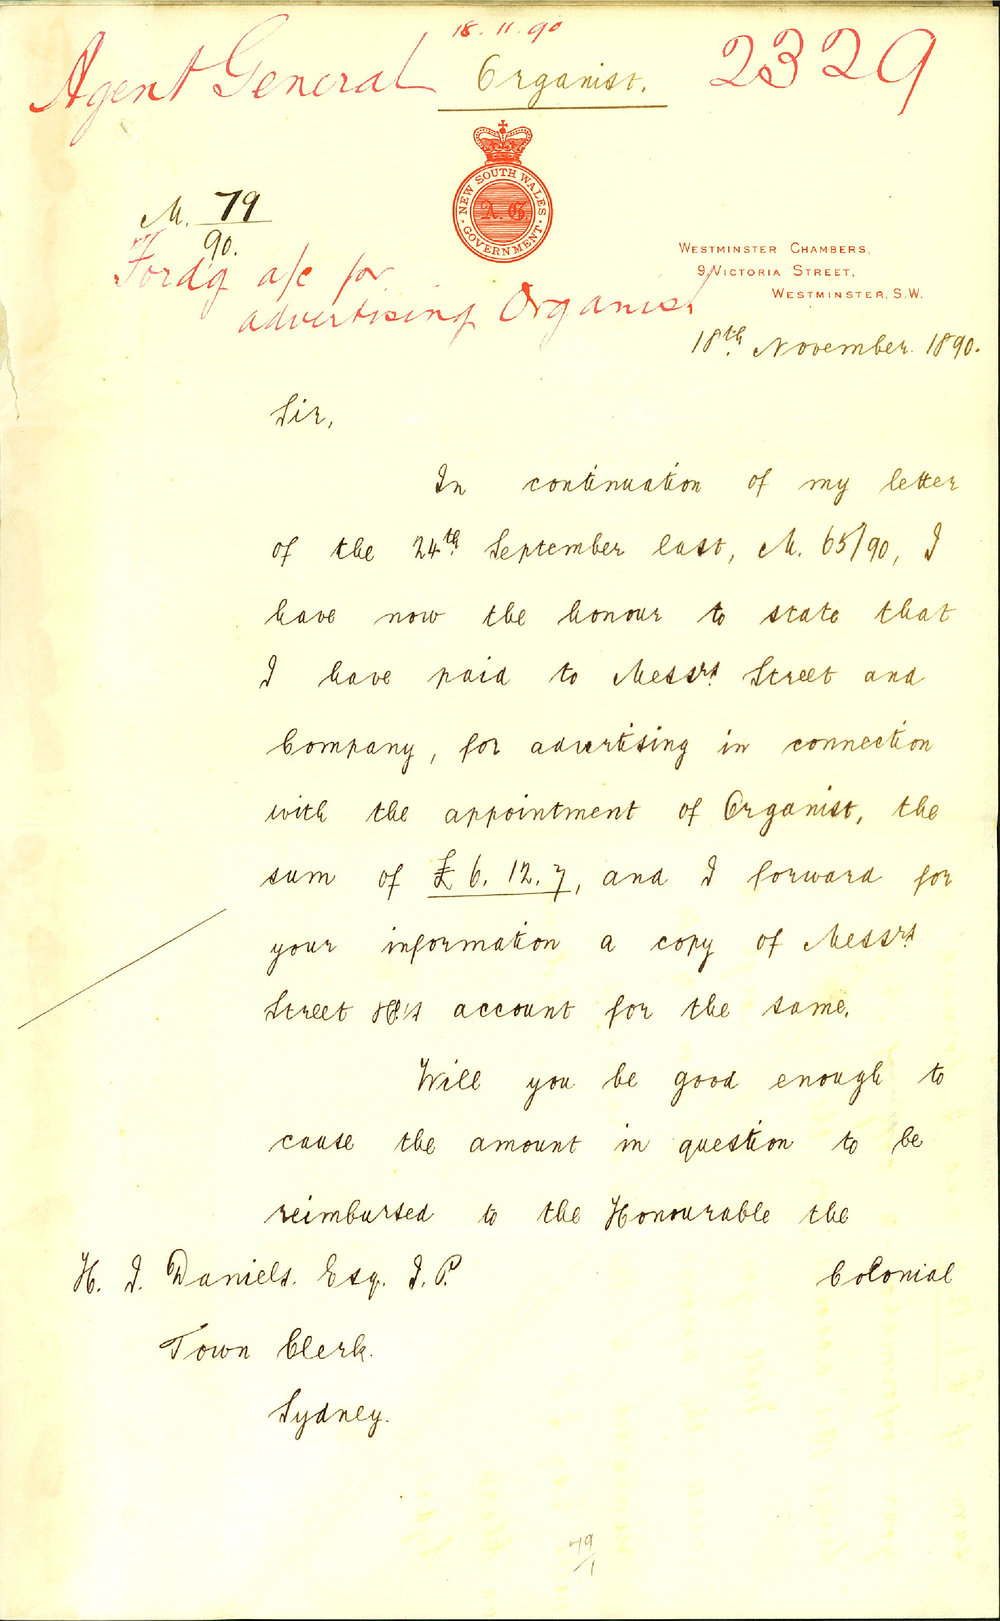 18.11.90
Agent General
Organist.
2329
NEW SOUTH WALES
A. G.
GOVERNMENT
M. 79
90.
Ford'g a/c for
advertising Organist
WESTMINSTER CHAMBERS,
9, VICTORIA STREET,
WESTMINSTER, S.W.
18th November 1890.
Sir,
In continuation of my letter
of the 24th September last, M. 65/90, I
have now the honour to state that
I have paid to Messrs Street and
Company, for advertising in connection
with the appointment of Organist, the
sum of £6. 12. 7, and I forward for
your information a copy of Messrs
Street account for the same.
Will you be good enough to
cause the amount in question to be
reimbursed to the Honourable the
Colonial
H. J. Daniels. Esq. J.P.
Town Clerk.
Sydney.